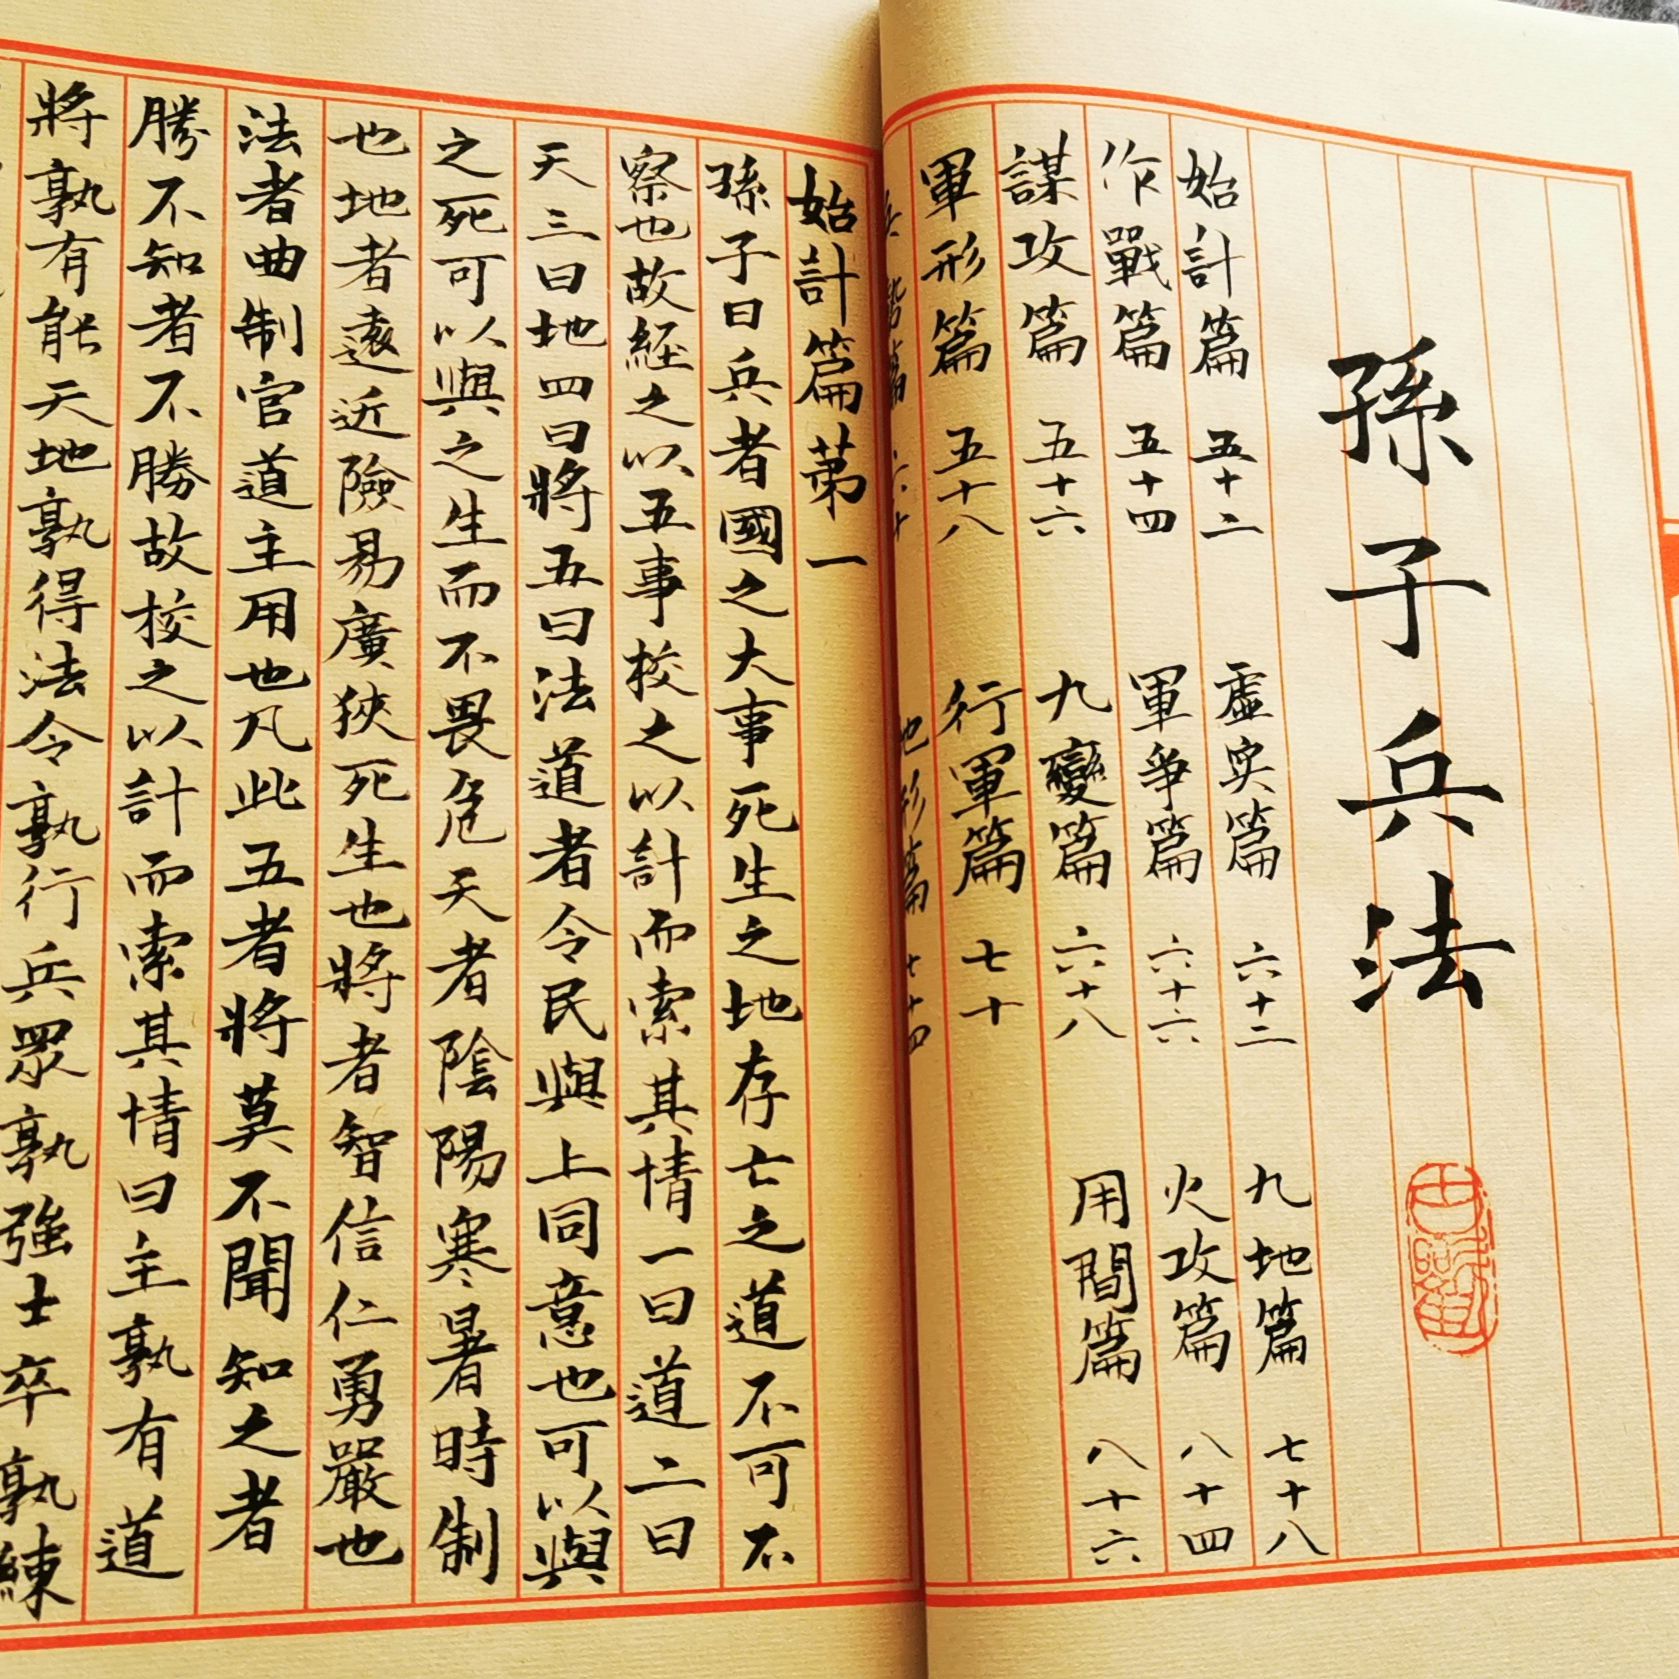 孫子兵法
始計篇 五十二 虛实篇 六十二 九地篇 七十八
作戰篇 五十四 軍爭篇 六十六 火攻篇 八十四
謀攻篇 五十六 九變篇 六十八 用間篇 八十六
軍形篇 五十八 行軍篇 七十
兵勢篇 六十 地形篇 七十四
始計篇第一
孫子曰兵者國之大事死生之地存亡之道不可不
察也故經之以五事校之以計而索其情一曰道二曰
天三曰地四曰將五曰法道者令民與上同意也可以與
之死可以與之生而不畏危天者陰陽寒暑時制
也地者遠近險易廣狹死生也將者智信仁勇嚴也
法者曲制官道主用也凡此五者將莫不聞知之者
勝不知者不勝故校之以計而索其情曰主孰有道
將孰有能天地孰得法令孰行兵眾孰強士卒孰練